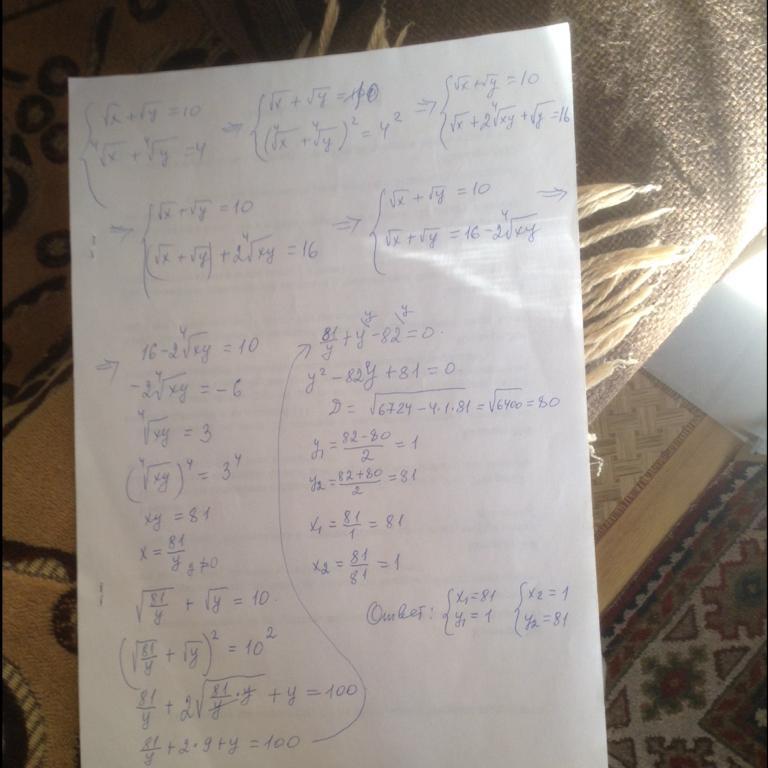 {√x + √y = 10
⁴√x + ⁴√y = 4
⇒ {√x + √y = 10
(⁴√x + ⁴√y)² = 4²
⇒ {√x + √y = 10
√x + 2⁴√xy + √y = 16
⇒ {√x + √y = 10
(√x + √y) + 2⁴√xy = 16
⇒ {√x + √y = 10
√x + √y = 16 - 2⁴√xy
⇒
⇒ 16 - 2⁴√xy = 10
-2⁴√xy = -6
⁴√xy = 3
(⁴√xy)⁴ = 3⁴
xy = 81
x = 81/y y≠0
√(81/y) + √y = 10
(√(81/y) + √y)² = 10²
81/y + 2√(81/y · y) + y = 100
81/y + 2·9 + y = 100
81/y + y\y - 82\y = 0
y² - 82y + 81 = 0
D = √(6724 - 4·1·81) = √6400 = 80
y₁ = (82-80)/2 = 1
y₂ = (82+80)/2 = 81
x₁ = 81/1 = 81
x₂ = 81/81 = 1
Ответ: {x₁ = 81 {x₂ = 1
y₁ = 1 y₂ = 81